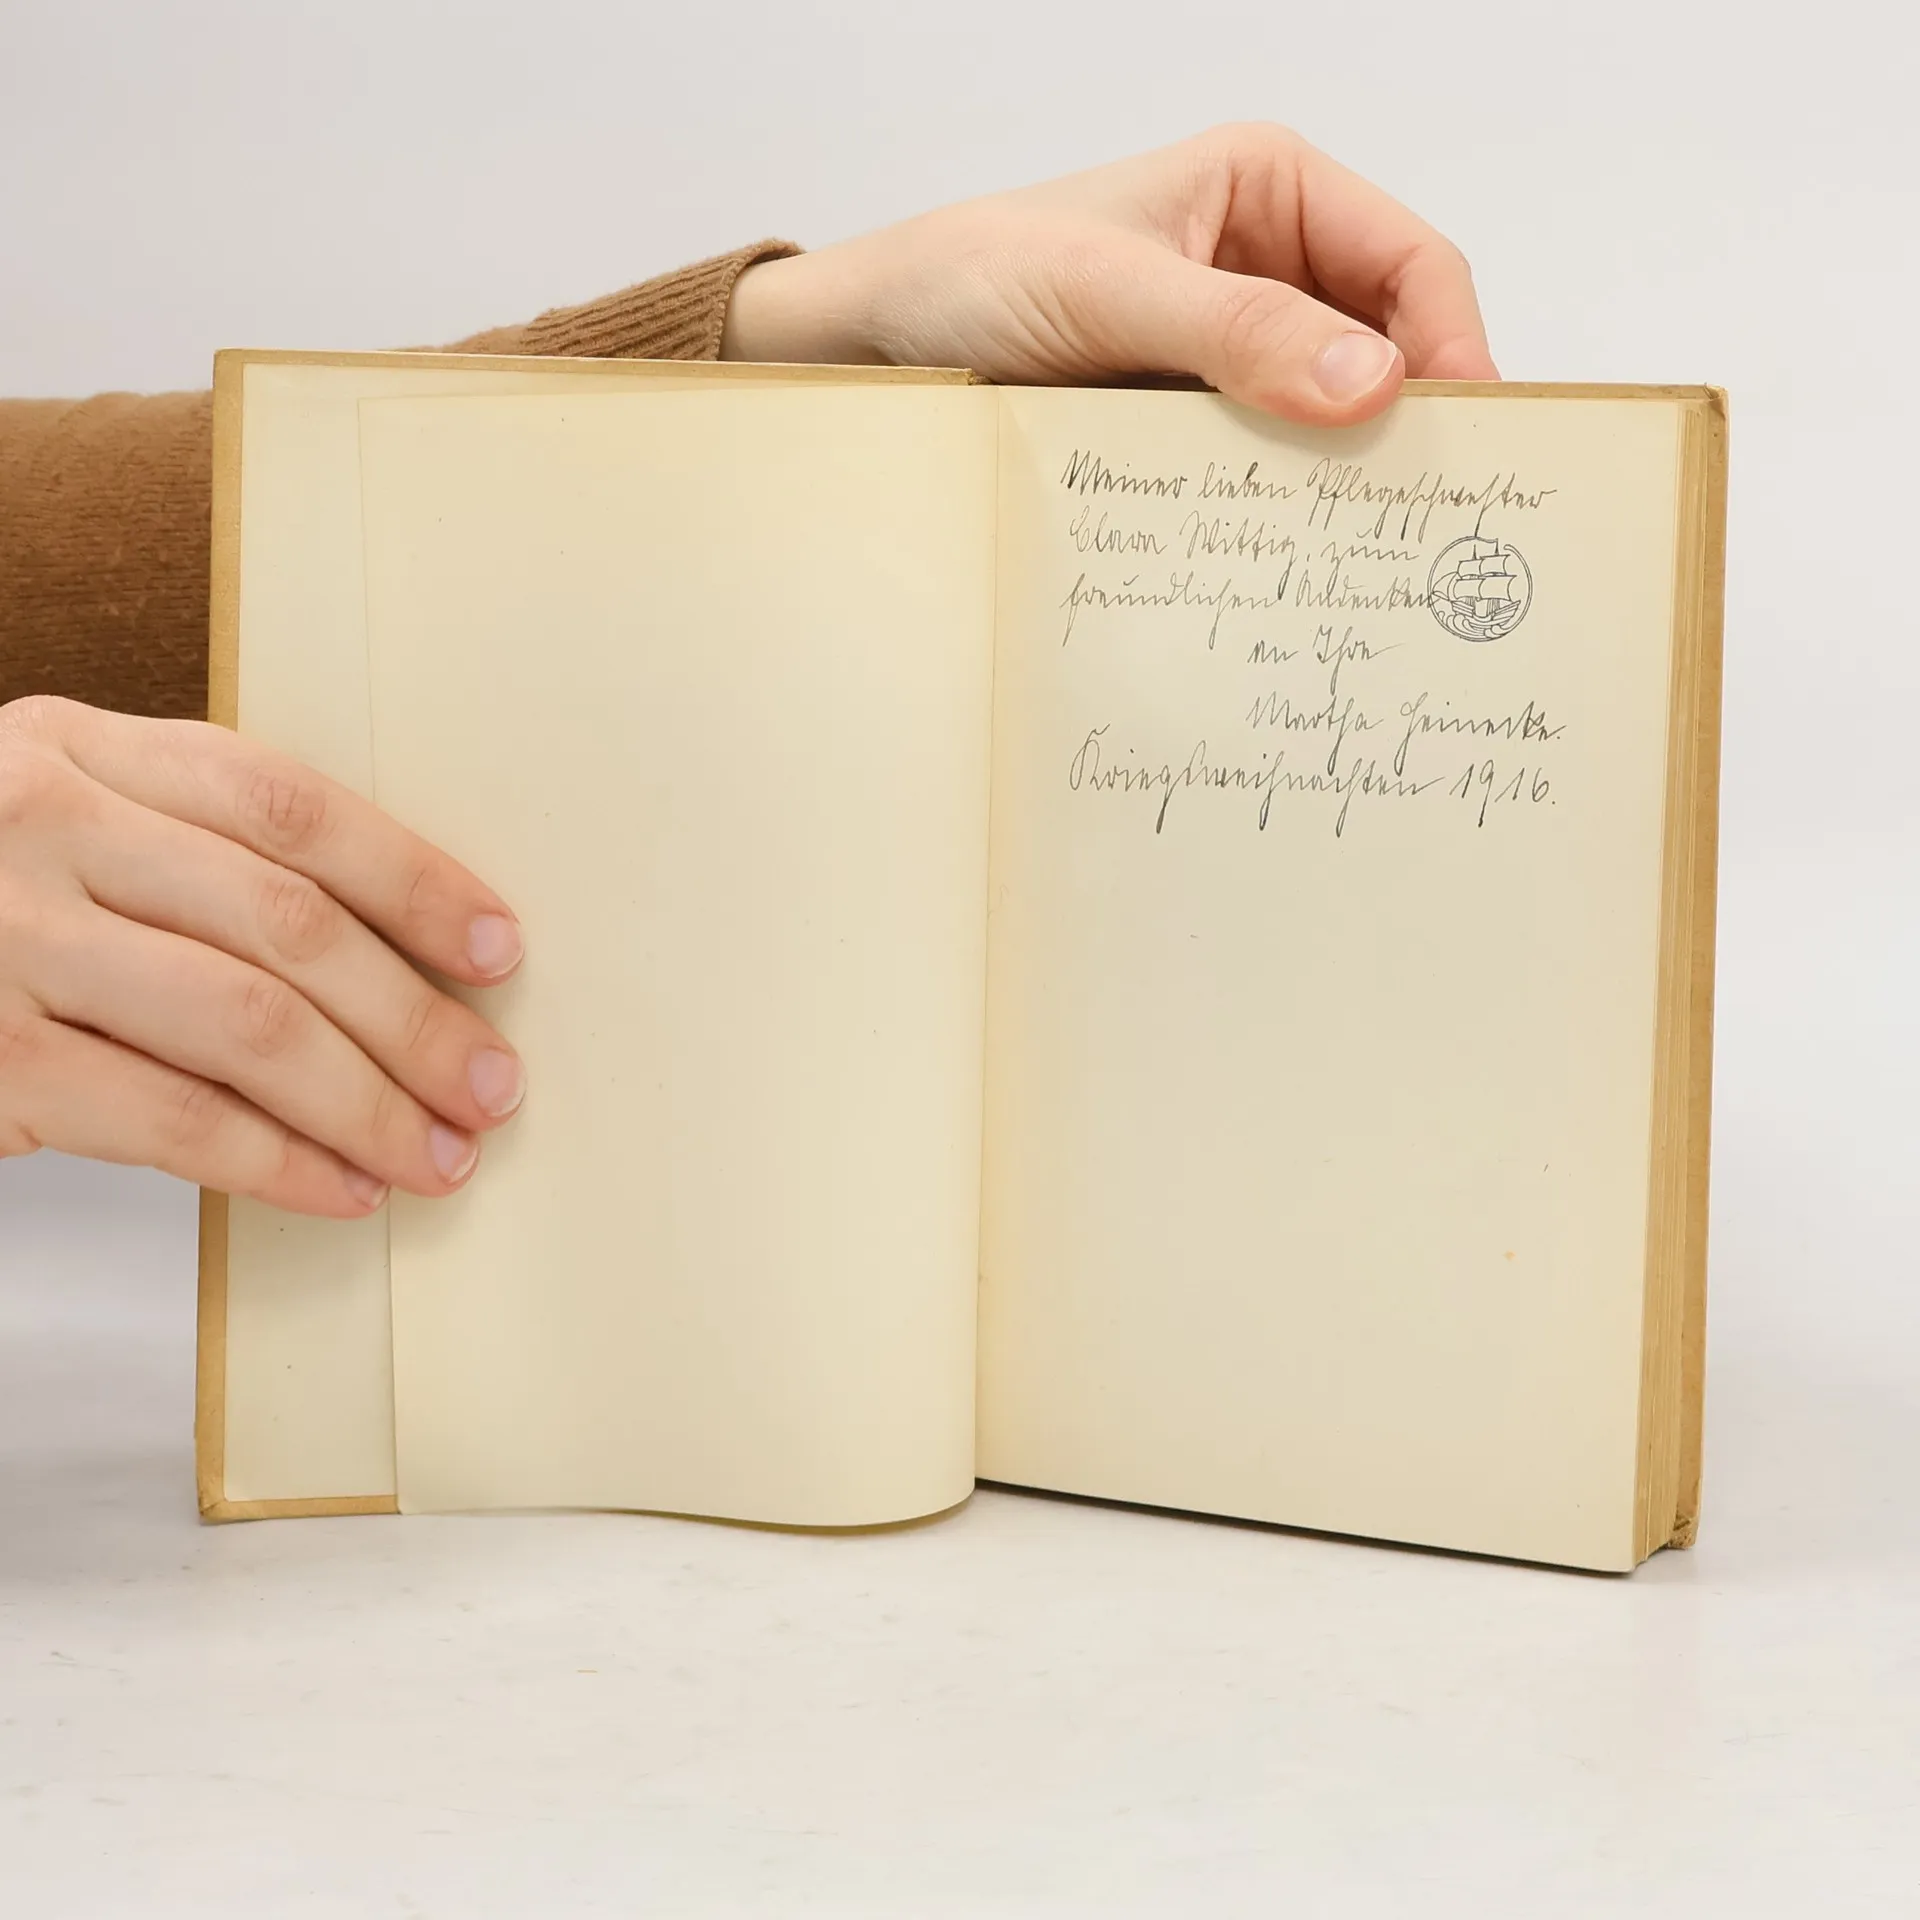 Meiner lieben Pflegeschwester
Clara Wittig, zum
freundlichen Andenken
an Ihre
Martha Heinecke.
Kriegsweihnachten 1916.